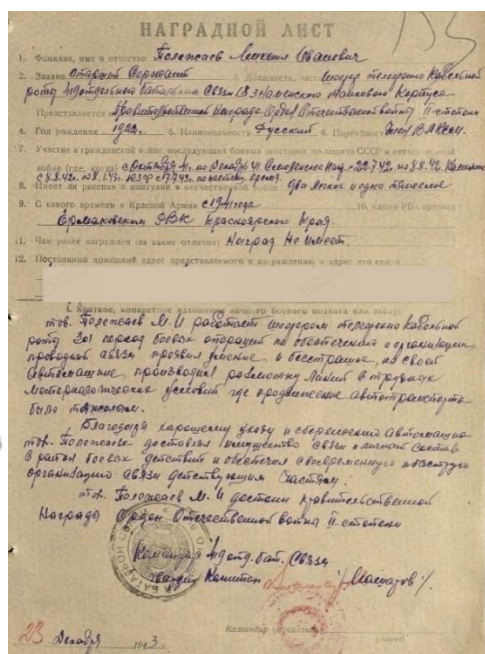 НАГРАДНОЙ ЛИСТ
1. Фамилия, имя и отчество Положаев Михаил Иванович
2. Звание Старший Сержант 3. Должность, часть шофер телефонно Кабельной
роты отдельного батальона Связи Танкового Корпуса
Представляется к Правительственной Награде Орден Отечественной войны II-степени
4. Год рождения 1922г. 5. Национальность Русский 6. Партийность член ВЛКСМ.
7. Участие в гражданской войне, последующих боевых действиях по защите СССР и отечественной
войне (где, когда) с Октября по Декабрь 41.
8. Имеет ли ранения и контузии в отечественной войне Два легких и одно тяжелое
9. С какого времени в Красной Армии с 1941 года 10. Каким РВК призван
Ермаковским РВК Красноярского Края.
11. Чем ранее награжден (за какие отличия) Наград Не имеет.
12. Постоянный домашний адрес представляемого к награждению и адрес его семьи
I. Краткое, конкретное изложение личного боевого подвига или заслуг
тов. Положаев М.И работает шофером телефонно кабельной
роты За период боевых операций по обеспечению и организации
проводной связи проявил умение и бесстрашие, на своей
автомашине, производил размотку линий в трудных
метеорологических условий где продвижение автотранспорта
было тяжелым.
Благодаря хорошему уходу и сбережению автомашины
тов. Положаев доставлял имущество связи и личный состав
в район боевых действий и обеспечил своевременную
организацию связи действующим частям.
тов. Положаев М.И достоин правительственной
Награды Орден Отечественной войны II-степени
Командир отд. бат. Связи
гвардии Капитан
23 Декабря 1943.
Командир